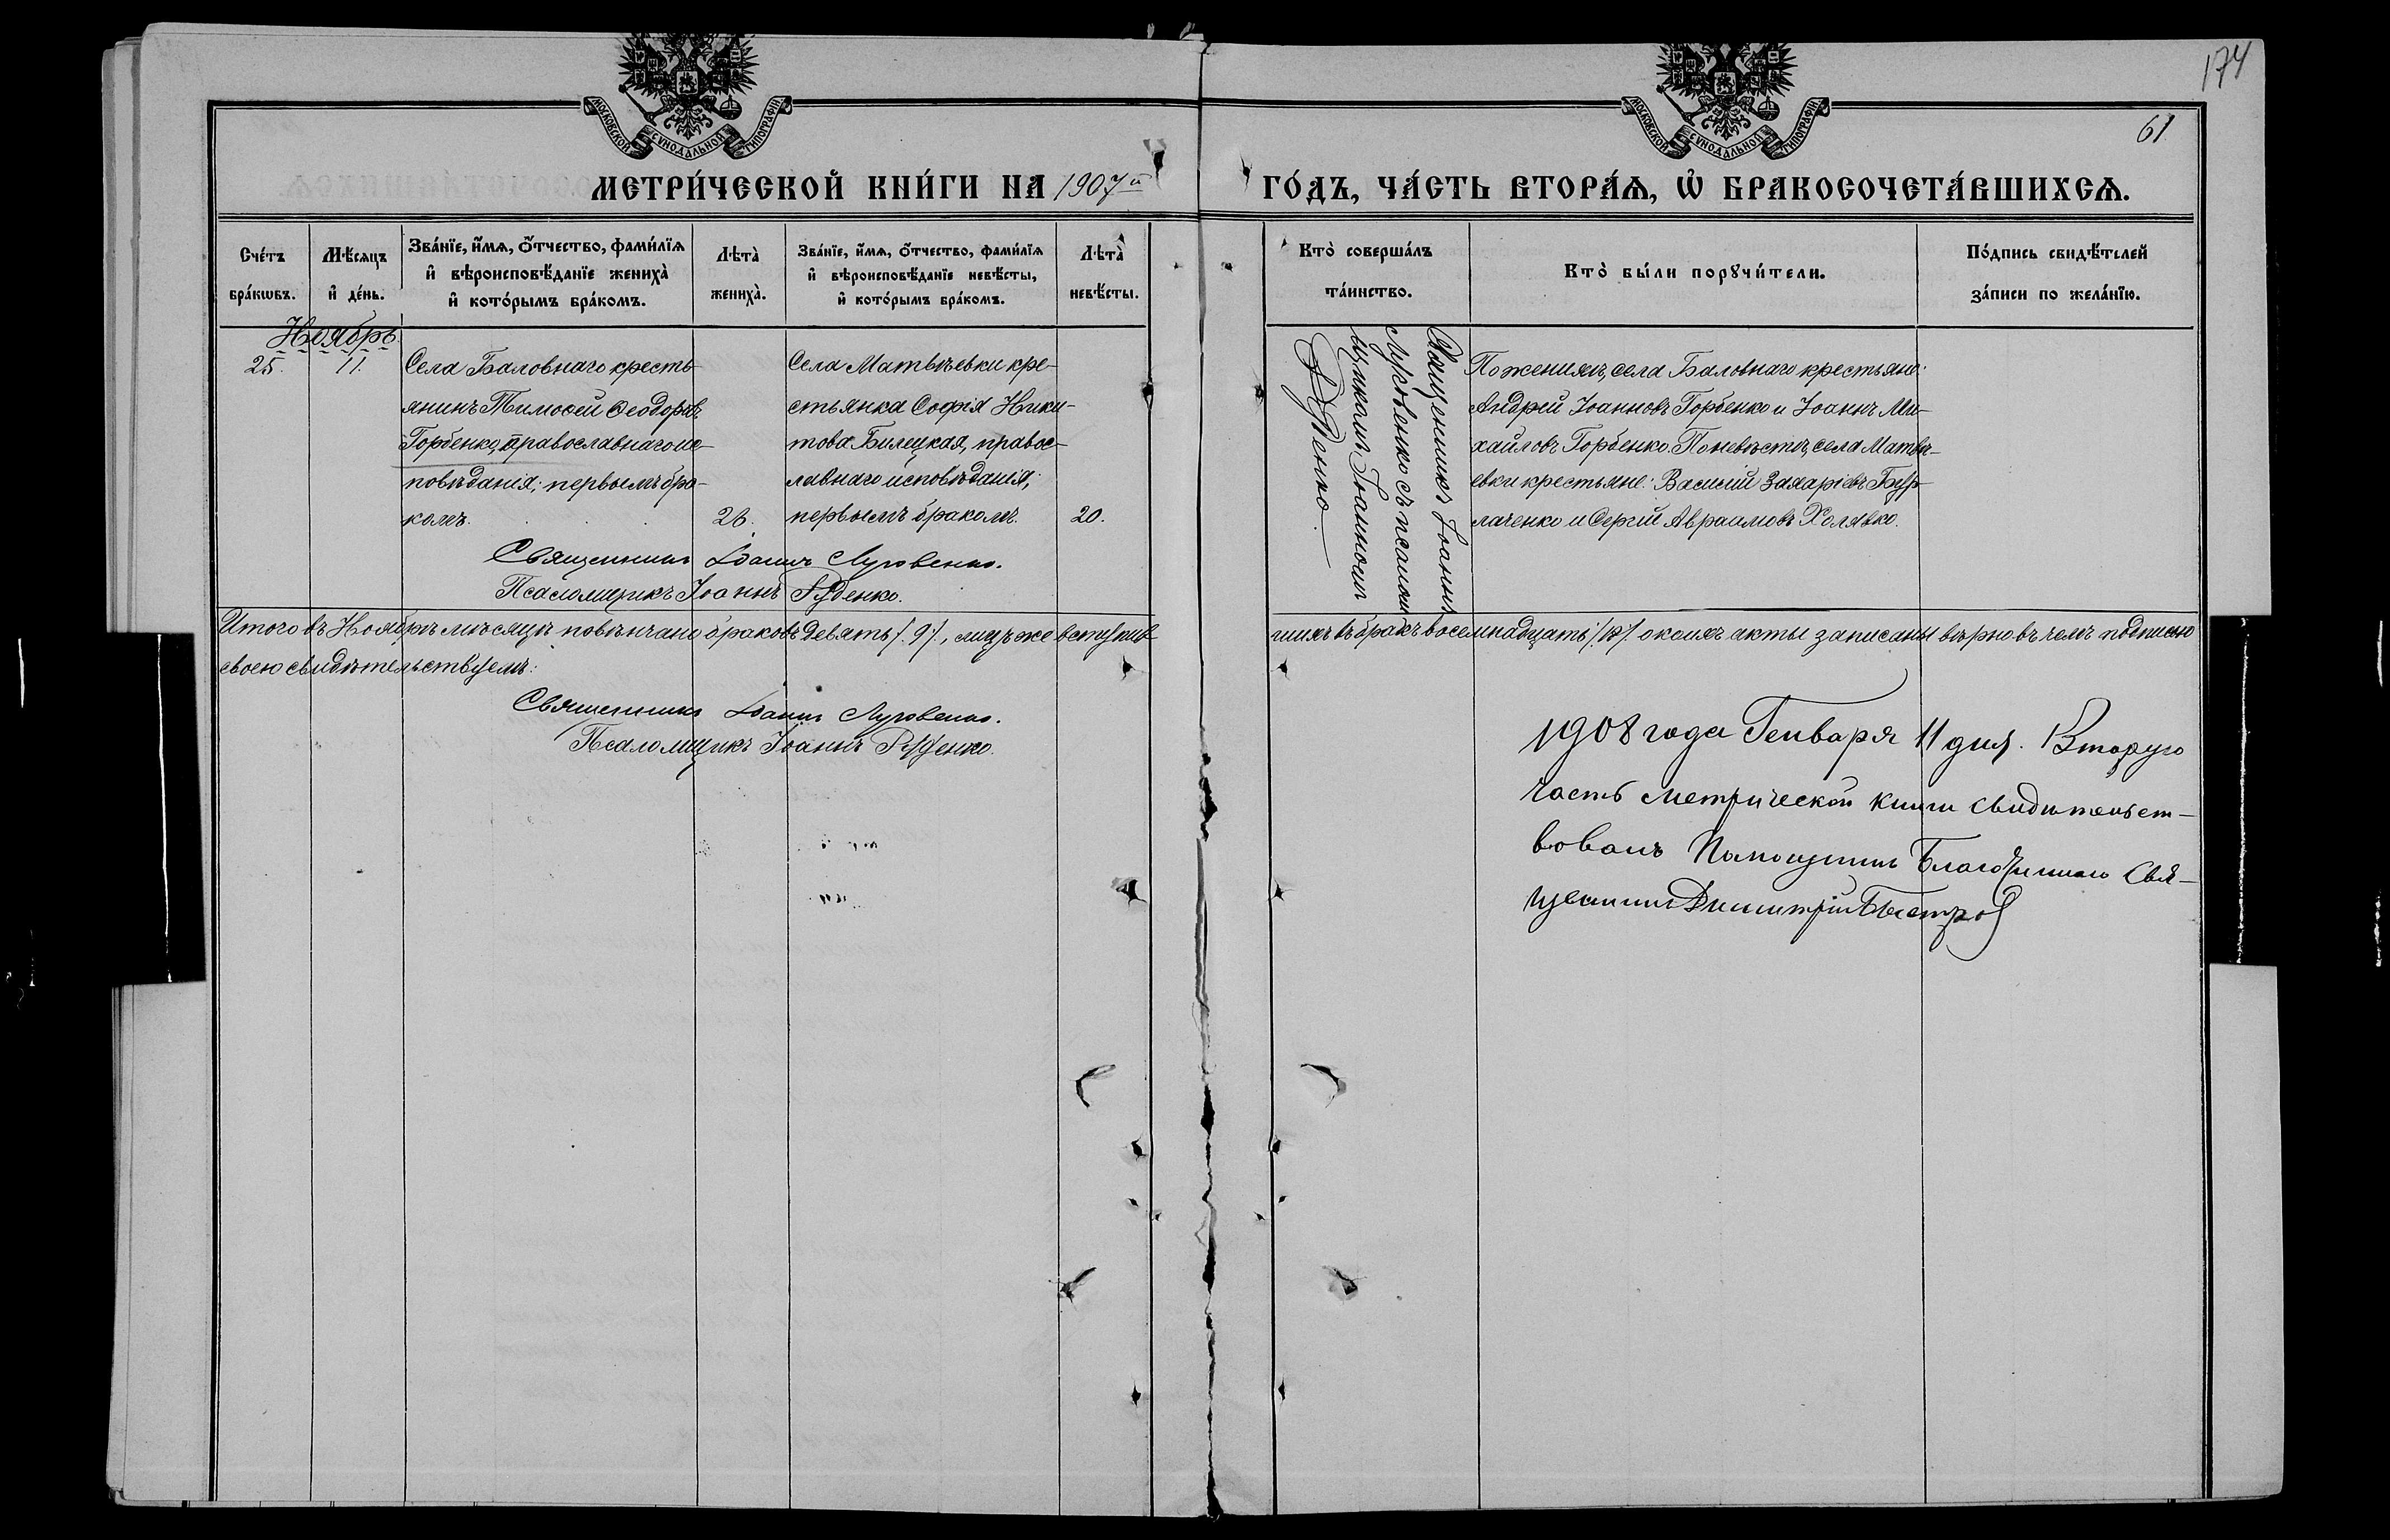 174
61
МОСКОВСКОЙ СѴНОДАЛЬНОЙ ТИПОГРАФІИ
МОСКОВСКОЙ СѴНОДАЛЬНОЙ ТИПОГРАФІИ
МЕТРИ́ЧЕСКОЙ КНИ́ГИ НА 1907й ГО́ДЪ, ЧА́СТЬ ВТОРА́Ѧ, Ѡ҆ БРАКОСОЧЕТА́ВШИХСѦ.
Сче́тъ
бра́кѡвъ.
Мѣ́сяцъ
и҆ де́нь.
Зва́нїе, и҆́мѧ, ѻ҆́тчество, фами́лїѧ
и҆ вѣроисповѣ́данїе жениха̀
и҆ кото́рымъ бра́комъ.
Лѣта̀
жениха̀.
Зва́нїе, и҆́мѧ, ѻ҆́тчество, фами́лїѧ
и҆ вѣроисповѣ́данїе невѣ́сты,
и҆ кото́рымъ бра́комъ.
Лѣта̀
невѣ́сты.
Кто̀ соверша́лъ
та́инство.
Кто̀ бы́ли порꙋчи́тели.
По́дпись свидѣ́телей
за́писи по жела́нїю.
Ноябрь
25. 11.
Села Баловнаго кресть-
янинъ Тимоѳей Ѳеодоровъ
Горбенко, православнаго ис-
повѣданія; первымъ бра-
комъ. 26.
Села Матвѣевки кре-
стьянка Софія Ники-
това Билецкая, правос-
лавнаго исповѣданія;
первымъ бракомъ. 20.
Священникъ Іоаннъ
Луговенко съ псалом-
щикомъ Іоанномъ
Руденко.
По женихѣ, села Баловнаго крестьяне:
Андрей Іоанновъ Горбенко и Іоаннъ Ми-
хайловъ Горбенко. По невѣстѣ, села Матвѣ-
евки крестьяне: Василій Захаріевъ Бур-
лаченко и Сергій Авраамовъ Холявко.
Священникъ Іоаннъ Луговенко.
Псаломщикъ Іоаннъ Руденко.
Итого въ Ноябрѣ мѣсяцѣ повѣнчано браковъ девять /.9/., лицъ же вступив-
шихъ въ бракъ восемнадцать /.18/. о коихъ акты записаны вѣрно въ чемъ подписью
своею свидѣтельствуемъ:
Священникъ Іоаннъ Луговенко.
Псаломщикъ Іоаннъ Руденко.
1908 года Генваря 11 дня. Вторую
часть метрической книги свидѣтельст-
вовалъ Помощникъ Благочиннаго Свя-
щенникъ Димитрій Быстров